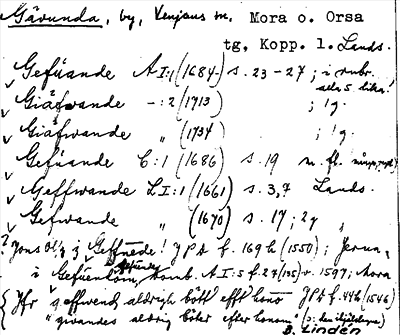 Gävunda, by, Venjans sn. Mora o. Orsa
tg. Kopp. l. Lands.
Gefúande A I:1 (1684- s. 23-27; i rubr.
alla 5 lika!
Giäfwande -:2 (1713) ; 1 g.
Giäfwande " (1734) ; 1 g.
Gefúande C:1 (1686) s. 19 m. fl.
Geffwande L I:1 (1661) s. 3,7 Lands.
Gefwande " (1670) s. 17; 2 g "
? Jons Ol/s i Geffuede! JPA f. 169 h (1550); Jerna,
i Gefúenlom, A I:5 f. 27 v. 1597; Mora
Jfr geffwend aldrigh bött efft JPA f. 44 h (1546)
"gwandes aldrig böter efter honom"
D. Lindén